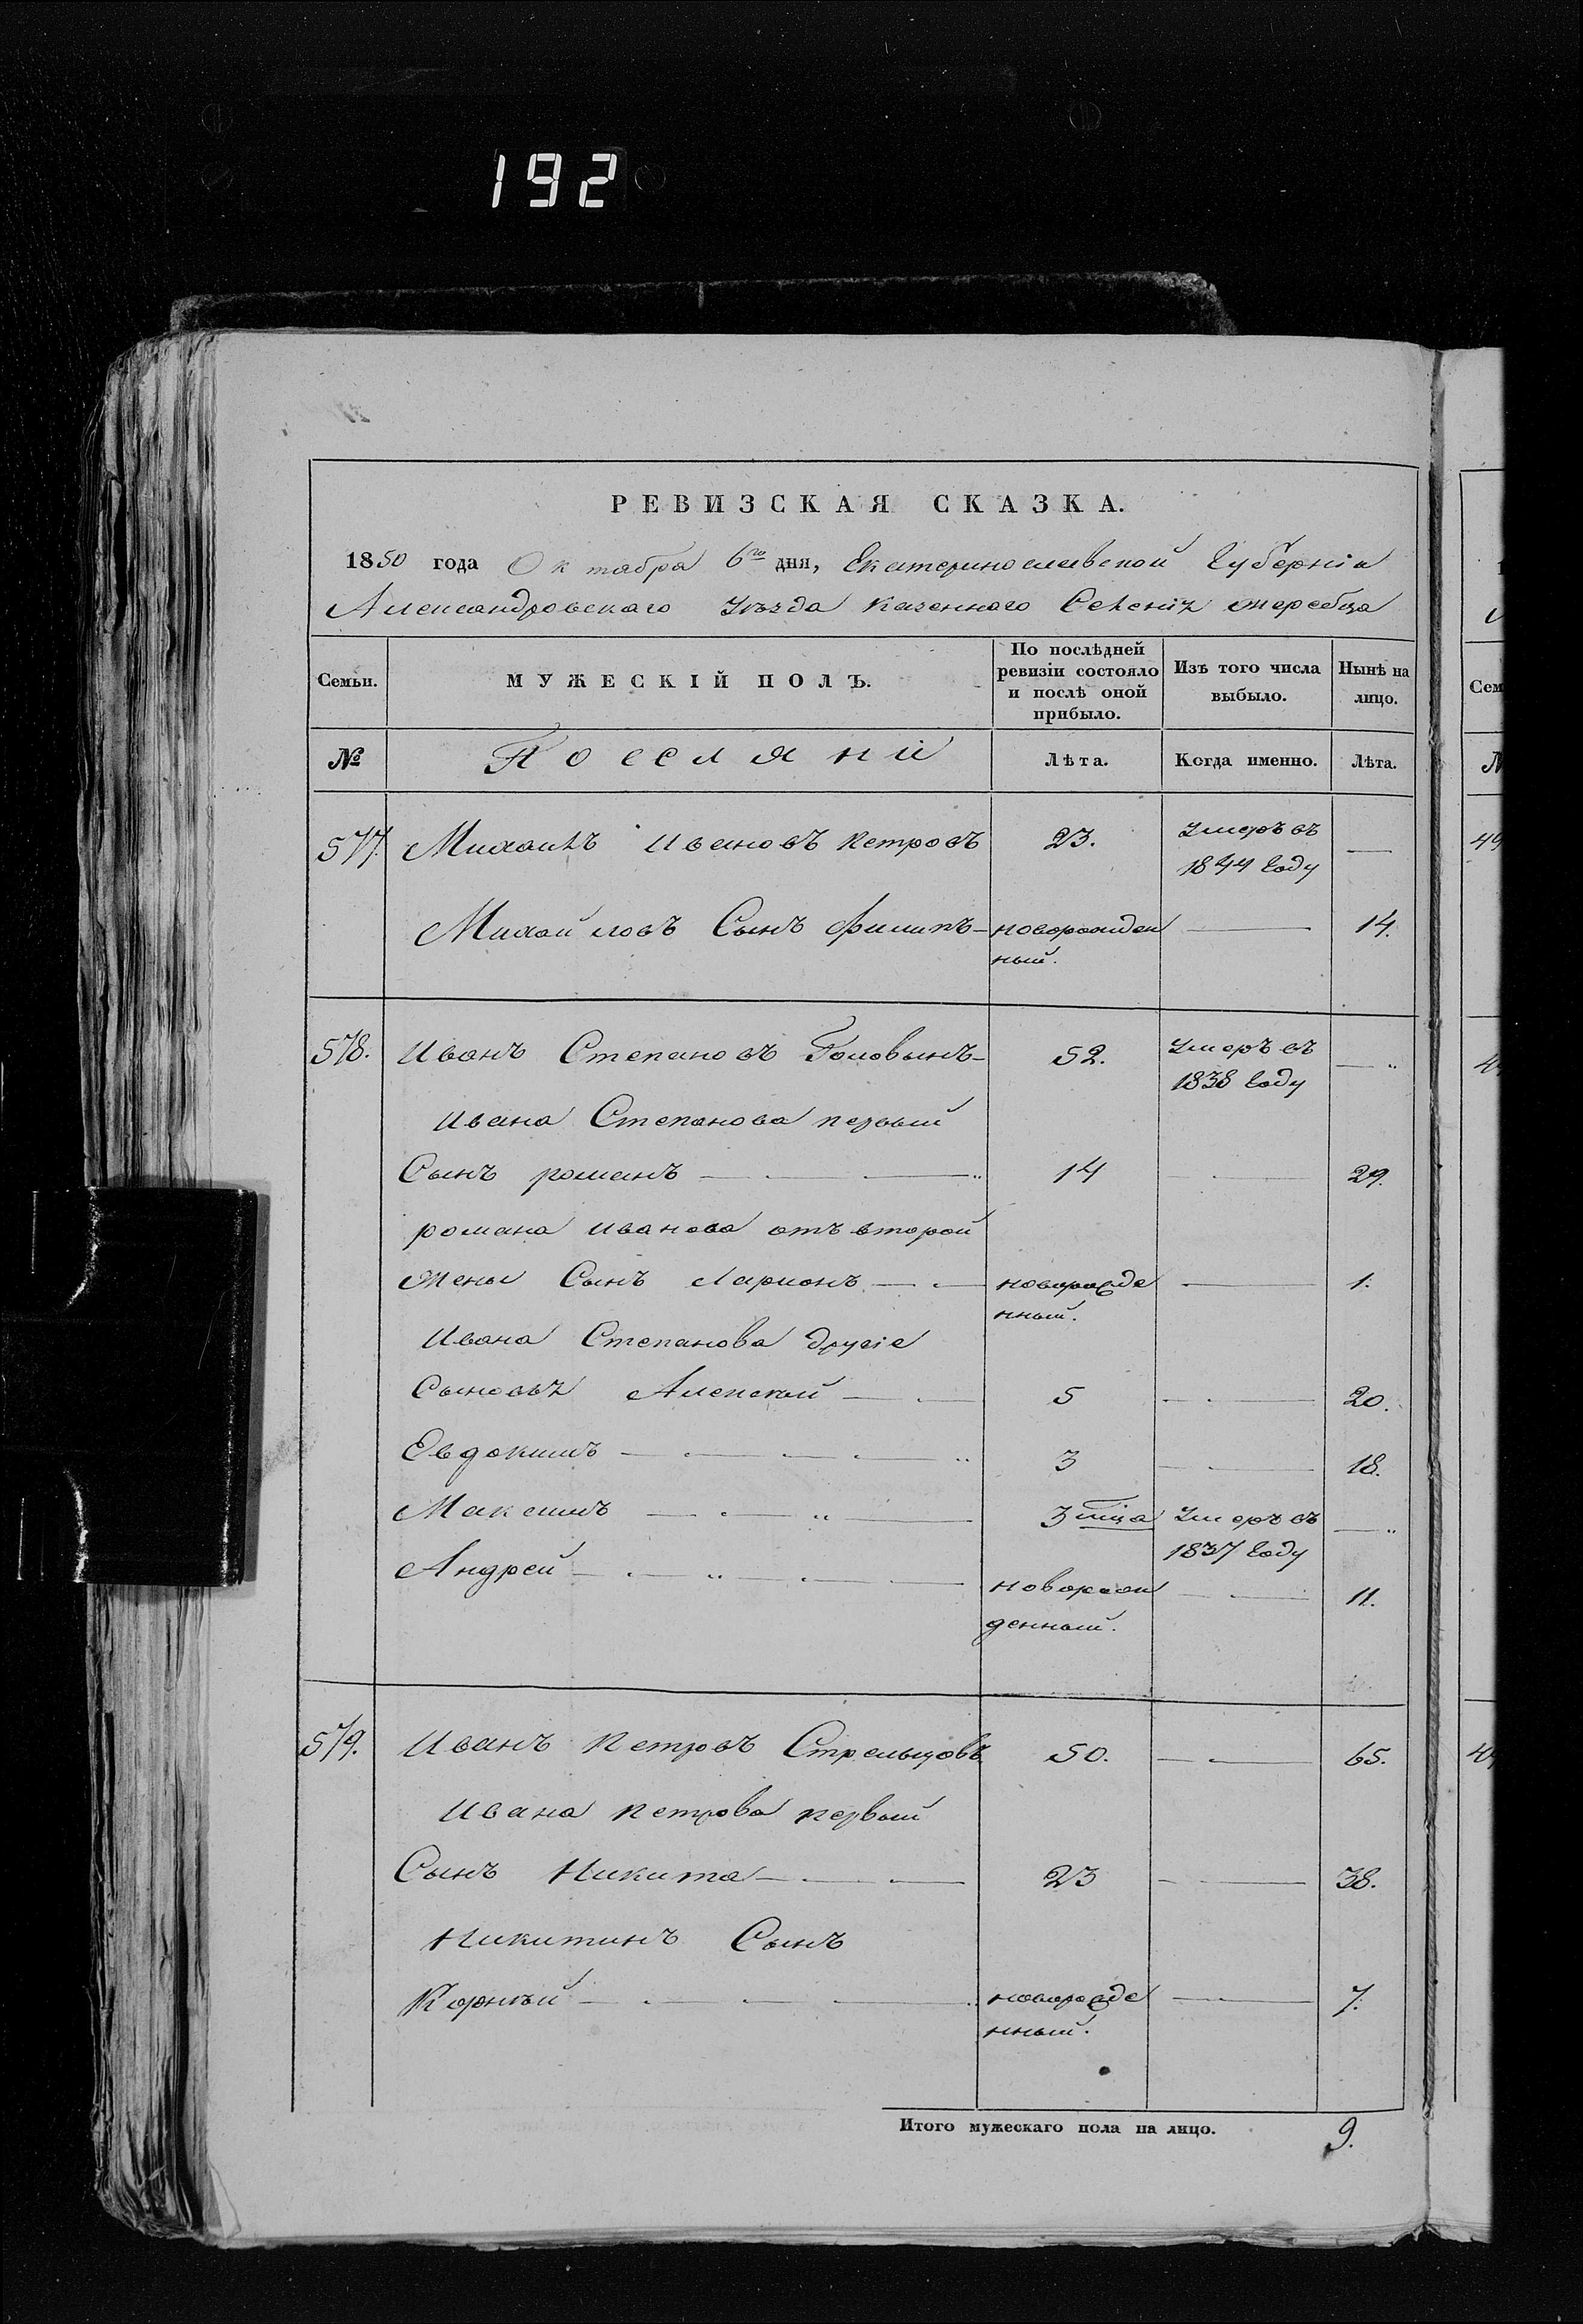 192
РЕВИЗСКАЯ СКАЗКА.
1850 года Октября 6го дня, Екатеринославской Губерніи
Александровскаго Уѣзда Казенного Селенія Жеребца
Семьи.
МУЖЕСКІЙ ПОЛЪ.
По послѣдней
ревизіи состояло
и послѣ оной
прибыло.
Изъ того числа
выбыло.
Нынѣ на
лицо.
Сем
№
Поселяни
Лѣта.
Когда именно.
Лѣта.
№
577. Михаилъ Ивановъ Петровъ 23. Умеръ въ
1844 Году
Михайловъ Сынъ Филипъ новорожден 14.
ный.
578. Иванъ Степановъ Головынъ 52. Умеръ въ
1838 Году
Ивана Степанова первый
Сынъ романъ 14 29.
романа Иванова отъ второй
Жены Сынъ Ларионъ новорожде 1.
нный.
Ивана Степанова другіе
Сыновья Алексей 5 20.
Евдокимъ 3 18.
Максимъ 3 мца Умеръ въ
1837 Году
Андрей новорож 11.
денный.
579. Иванъ Петровъ Стрельцовъ 50. 65.
Ивана Петрова первый
Сынъ Никита 23 38.
Никитинъ Сынъ
Корнѣй новорожде 7.
нный.
Итого мужескаго пола на лицо. 9.